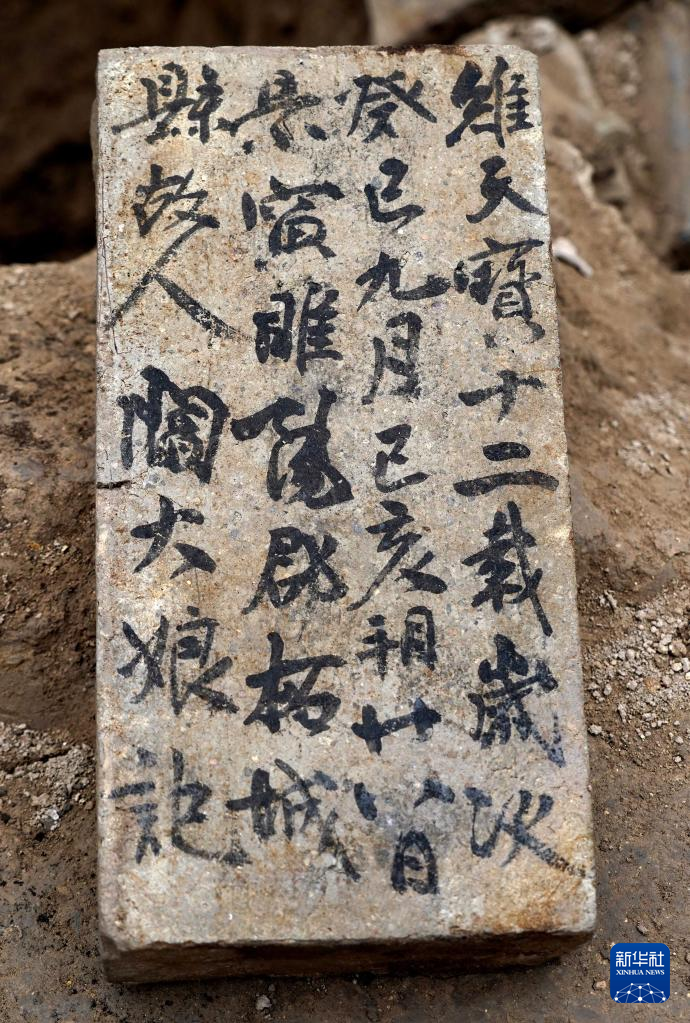 維天寶十二載歲次
癸巳九月己亥朔廿八日
景寅睢陽郡柘城
縣故人 閻大娘記
新华社
XINHUA NEWS